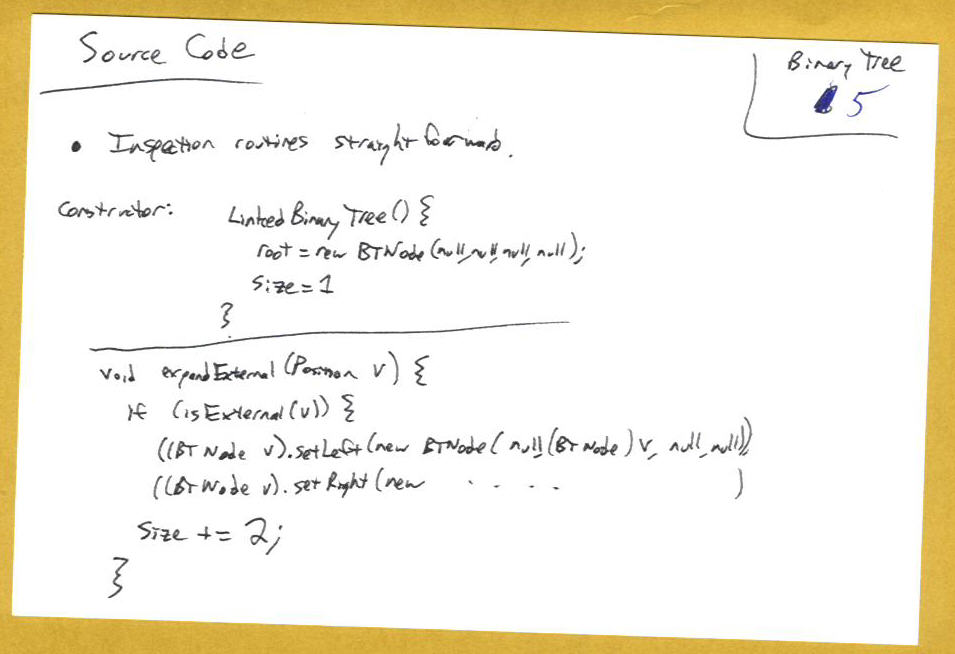 Source Code
Binary Tree
5
• Inspection routines straight forward.
Constructor: LinkedBinaryTree() {
root = new BTNode(null, null, null, null);
Size = 1
}
Void expandExternal (Position v) {
If (isExternal(v)) {
((BTNode v).setLeft(new BTNode( null, (BTNode) v, null, null))
((BTNode v). set Right (new . . . . )
Size += 2;
}